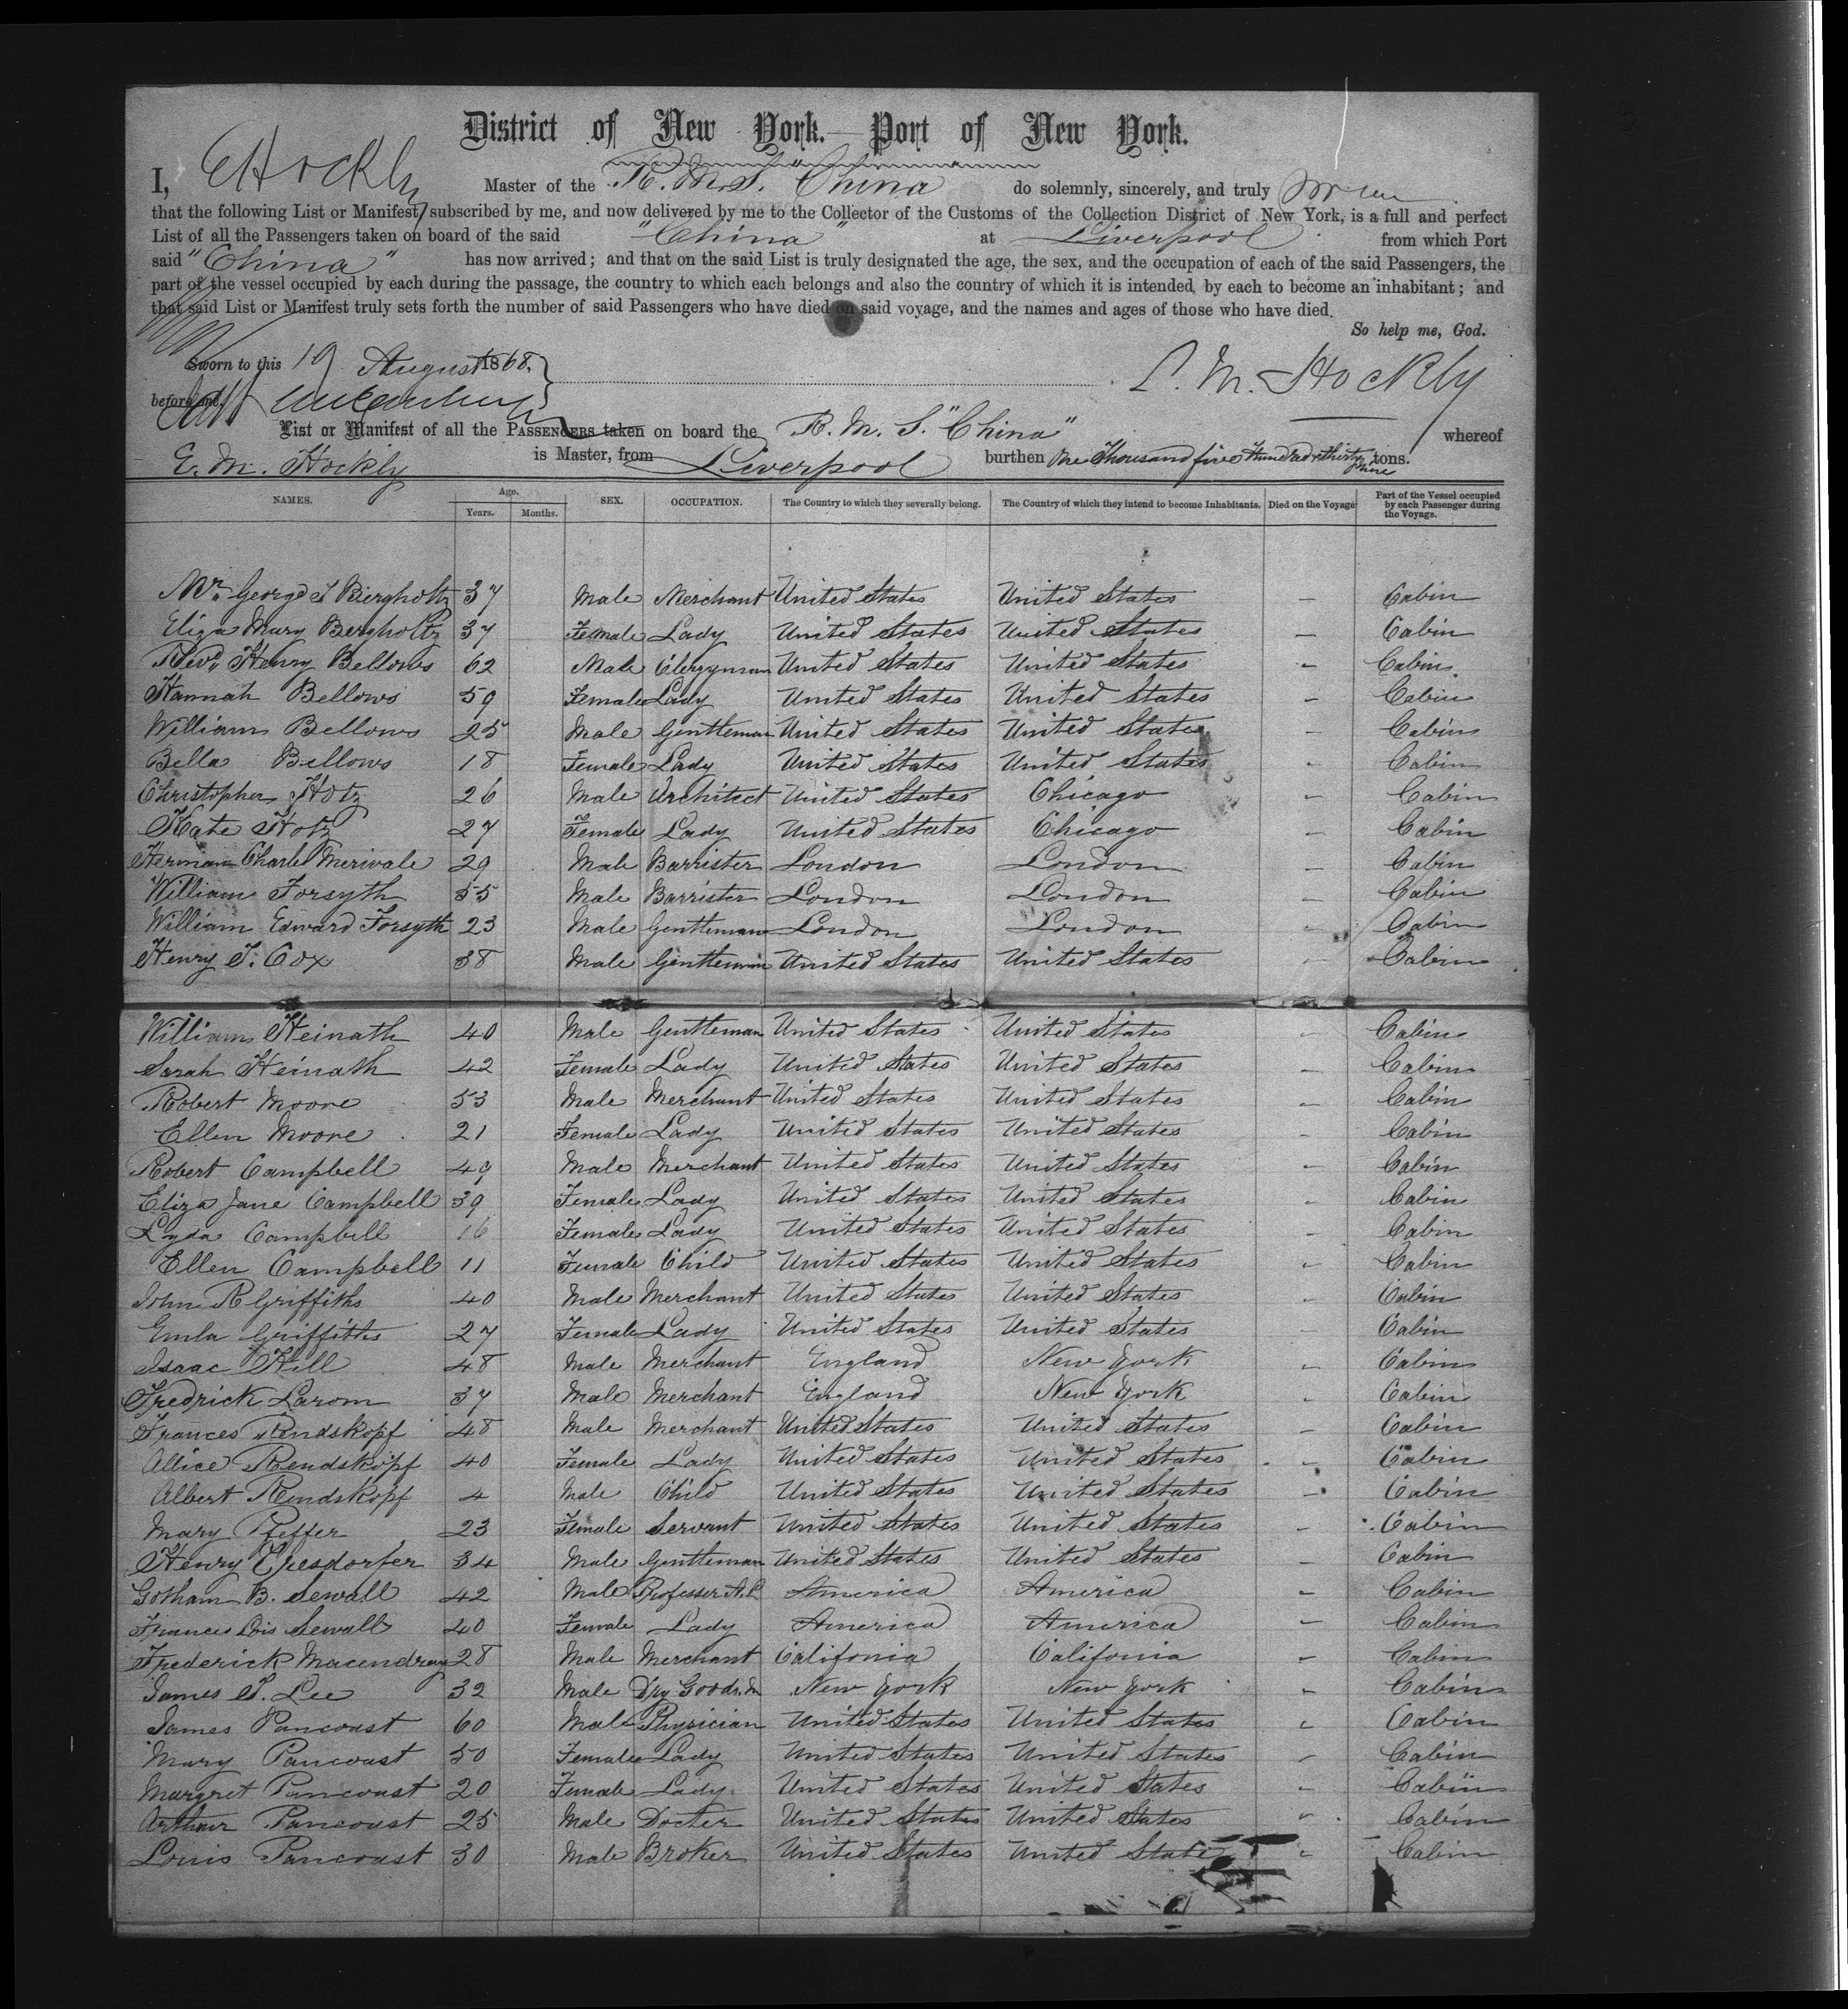 District of New York.—Port of New York.
I, E Hockly Master of the R. M. S. "China" do solemnly, sincerely, and truly swear
that the following List or Manifest, subscribed by me, and now delivered by me to the Collector of the Customs of the Collection District of New York, is a full and perfect
List of all the Passengers taken on board of the said "China" at Liverpool from which Port
said "China" has now arrived; and that on the said List is truly designated the age, the sex, and the occupation of each of the said Passengers, the
part of the vessel occupied by each during the passage, the country to which each belongs and also the country of which it is intended by each to become an inhabitant; and
that said List or Manifest truly sets forth the number of said Passengers who have died on said voyage, and the names and ages of those who have died.
So help me, God.
Sworn to this 19 August 1868,
before me, E. M. Hockly
List or Manifest of all the PASSENGERS taken on board the R. M. S. "China" whereof
E. M. Hockly is Master, from Liverpool burthen One Thousand five Hundred & thirty nine tons.
NAMES. Age. Years. Months. SEX. OCCUPATION. The Country to which they severally belong. The Country of which they intend to become Inhabitants. Died on the Voyage Part of the Vessel occupied by each Passenger during the Voyage.
Mr. George J Bergholtz 37 Male Merchant United States United States — Cabin
Eliza Mary Bergholtz 37 Female Lady United States United States — Cabin
Revd. Henry Bellows 62 Male Clergyman United States United States - Cabin
Hannah Bellows 59 Female Lady United States United States - Cabin
William Bellows 25 Male Gentleman United States United States - Cabin
Bella Bellows 18 Female Lady United States United States - Cabin
Christopher Hotz 26 Male Architect United States Chicago - Cabin
Kate Hotz 27 Female Lady United States Chicago - Cabin
Herman Charles Merivale 29 Male Barrister London London - Cabin
William Forsyth 55 Male Barrister London London - Cabin
William Edward Forsyth 23 Male Gentleman London London - Cabin
Henry T. Cox 38 Male Gentleman United States United States - Cabin
William Heinath 40 Male Gentleman United States United States - Cabin
Sarah Heinath 42 Female Lady United States United States - Cabin
Robert Moore 53 Male Merchant United States United States - Cabin
Ellen Moore 21 Female Lady United States United States - Cabin
Robert Campbell 49 Male Merchant United States United States - Cabin
Eliza Jane Campbell 39 Female Lady United States United States - Cabin
Lyda Campbell 16 Female Lady United States United States - Cabin
Ellen Campbell 11 Female Child United States United States - Cabin
John R Griffiths 40 Male Merchant United States United States - Cabin
Emla Griffiths 27 Female Lady United States United States - Cabin
Isaac Hill 48 Male Merchant England New York - Cabin
Fredrick Larom 37 Male Merchant England New York - Cabin
Frances Rendskopf 48 Male Merchant United States United States - Cabin
Alice Rendskopf 40 Female Lady United States United States - Cabin
Albert Rendskopf 4 Male Child United States United States - Cabin
Mary Pfeffer 23 Female Servant United States United States - Cabin
Henry 34 Male Gentleman United States United States - Cabin
Gotham B. Sewall 42 Male Professer America America - Cabin
Frances Lois Sewall 40 Female Lady America America - Cabin
Frederick Macendray 28 Male Merchant Califonia Califonia - Cabin
James T. Lee 32 Male Dry Goods. M New York New York - Cabin
James Pancoast 60 Male Physician United States United States - Cabin
Mary Pancoast 50 Female Lady United States United States - Cabin
Margret Pancoast 20 Female Lady United States United States - Cabin
Arthur Pancoast 25 Male Docter United States United States - Cabin
Louis Pancoast 30 Male Broker United States United States - Cabin